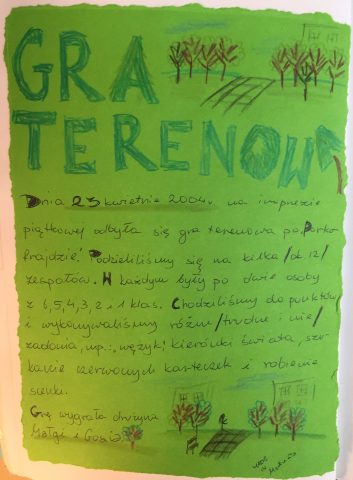 GRA
TERENOWA
Dnia 23 kwietnia 2004r. na imprezie
piątkowej odbyła się gra terenowa po "Parko-
frajdzie". Podzieliliśmy się na kilka /ok. 12/
zespołów. W każdym były po dwie osoby
z 6, 5, 4, 3, 2 i 1 klas. Chodziliśmy do punktów
i wykonywaliśmy różne /trudne i nie/
zadania, np.: węzły, kierunki świata, szu-
kanie czerwonych karteczek i robienie
sienki.
Grę wygrała drużyna
Małgi i Gosi